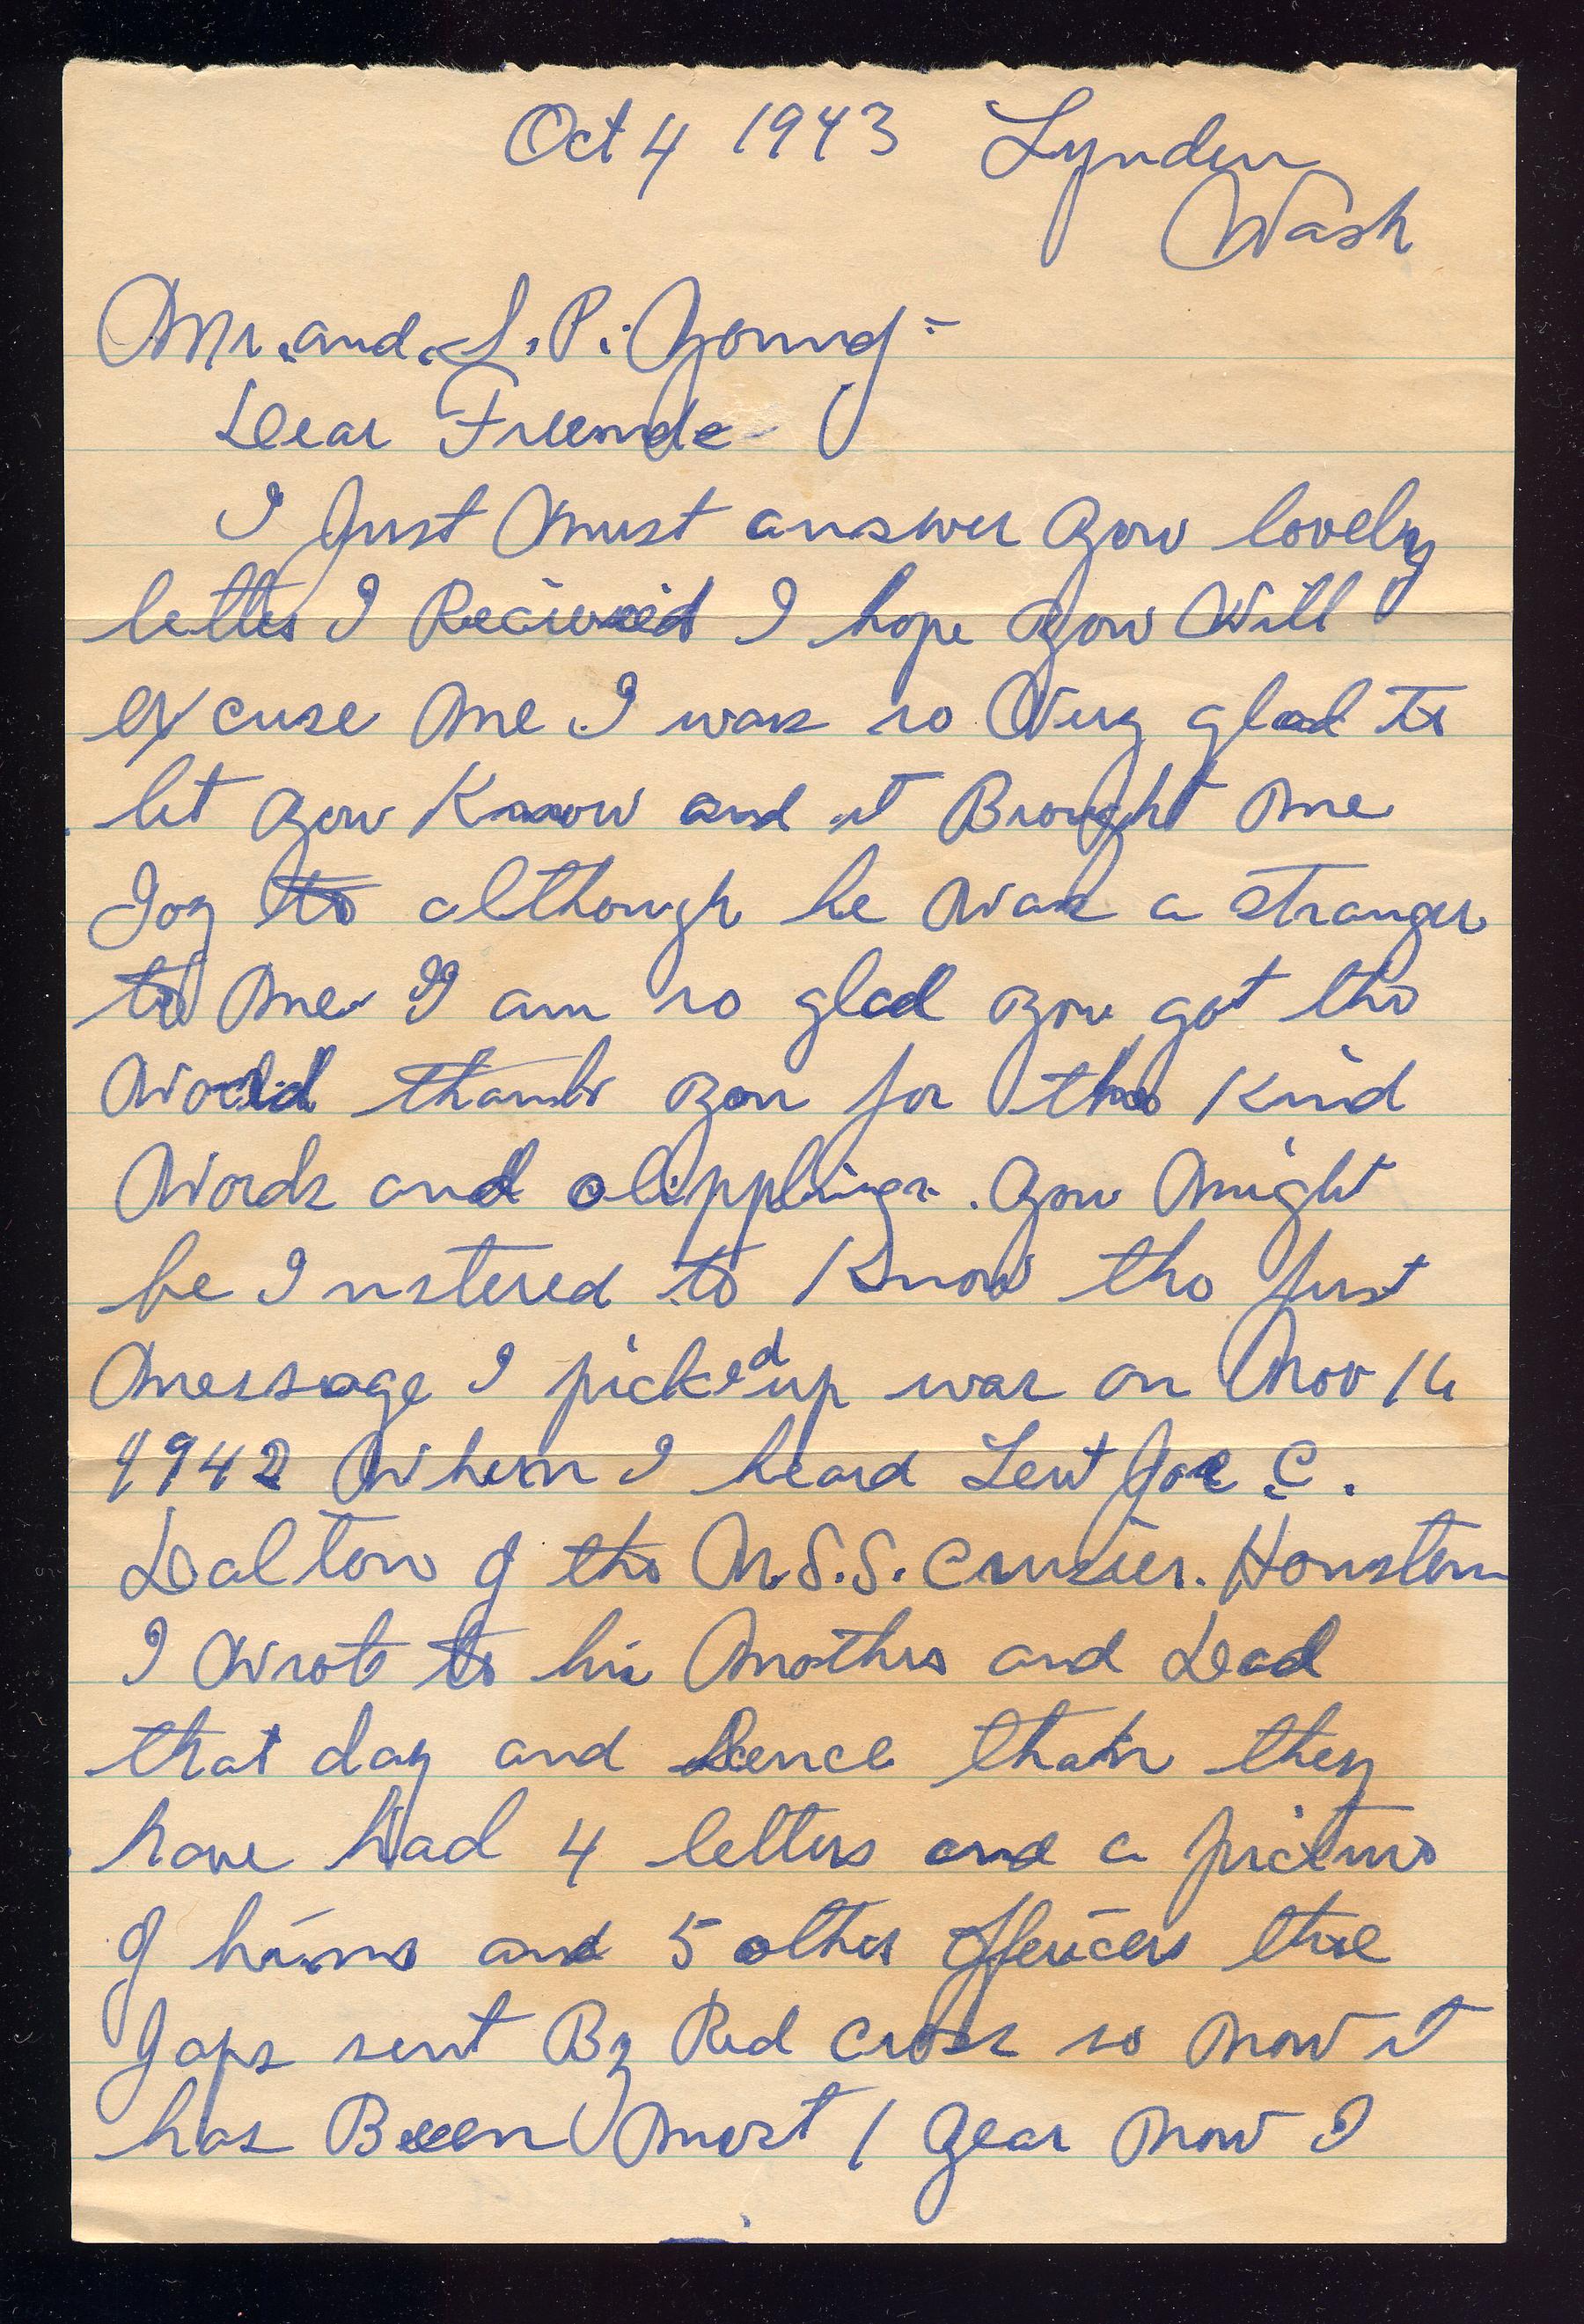 Oct 4 1943 Lynden
Wash
Mr. and. L. P. Young-
Dear Friends-
I Just Must answer your lovely
letter I Recieved I hope you Will
excuse me. I was so Very glad to
let you Know and it Brought me
Joy to although he was a stranger
to me I am so glad you got the
World thanks you for the Kind
Words and clippings. you might
be Instered to Know the first
message I picked up was on Nov 16
1942 When I heard Leut Joe C.
Dalton of the U.S.S. Cruiser. Houston
I Wrote to his Mother and Dad
that day and Sence they
have had 4 letters and a picture
of him and 5 other offericers the
Japs sent By Red Cross so now it
has Been most 1 year now I